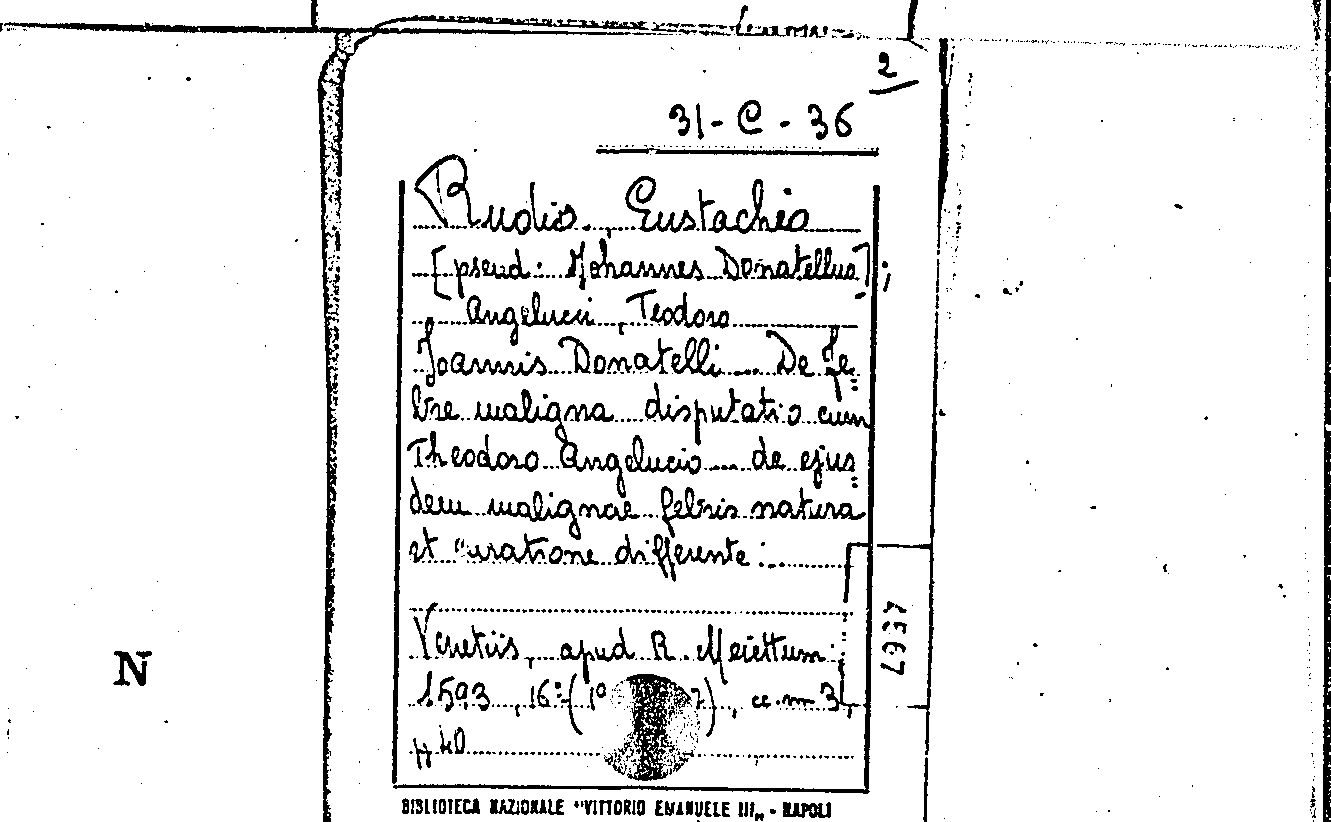 2
31-C-36
Rudio, Eustachio
[pseud: Johannes Donatellus];
Angelucci, Teodoro
Joannis Donatelli... De fe=
bre maligna disputatio cum
Theodoro Angelucio... de ejus=
dem malignae febris natura
et curatione differente:...
Venetiis, apud R. Meiettum
1593, 16:(1°
3,
40
N
BIBLIOTECA NAZIONALE "VITTORIO EMANUELE III„ - NAPOLI